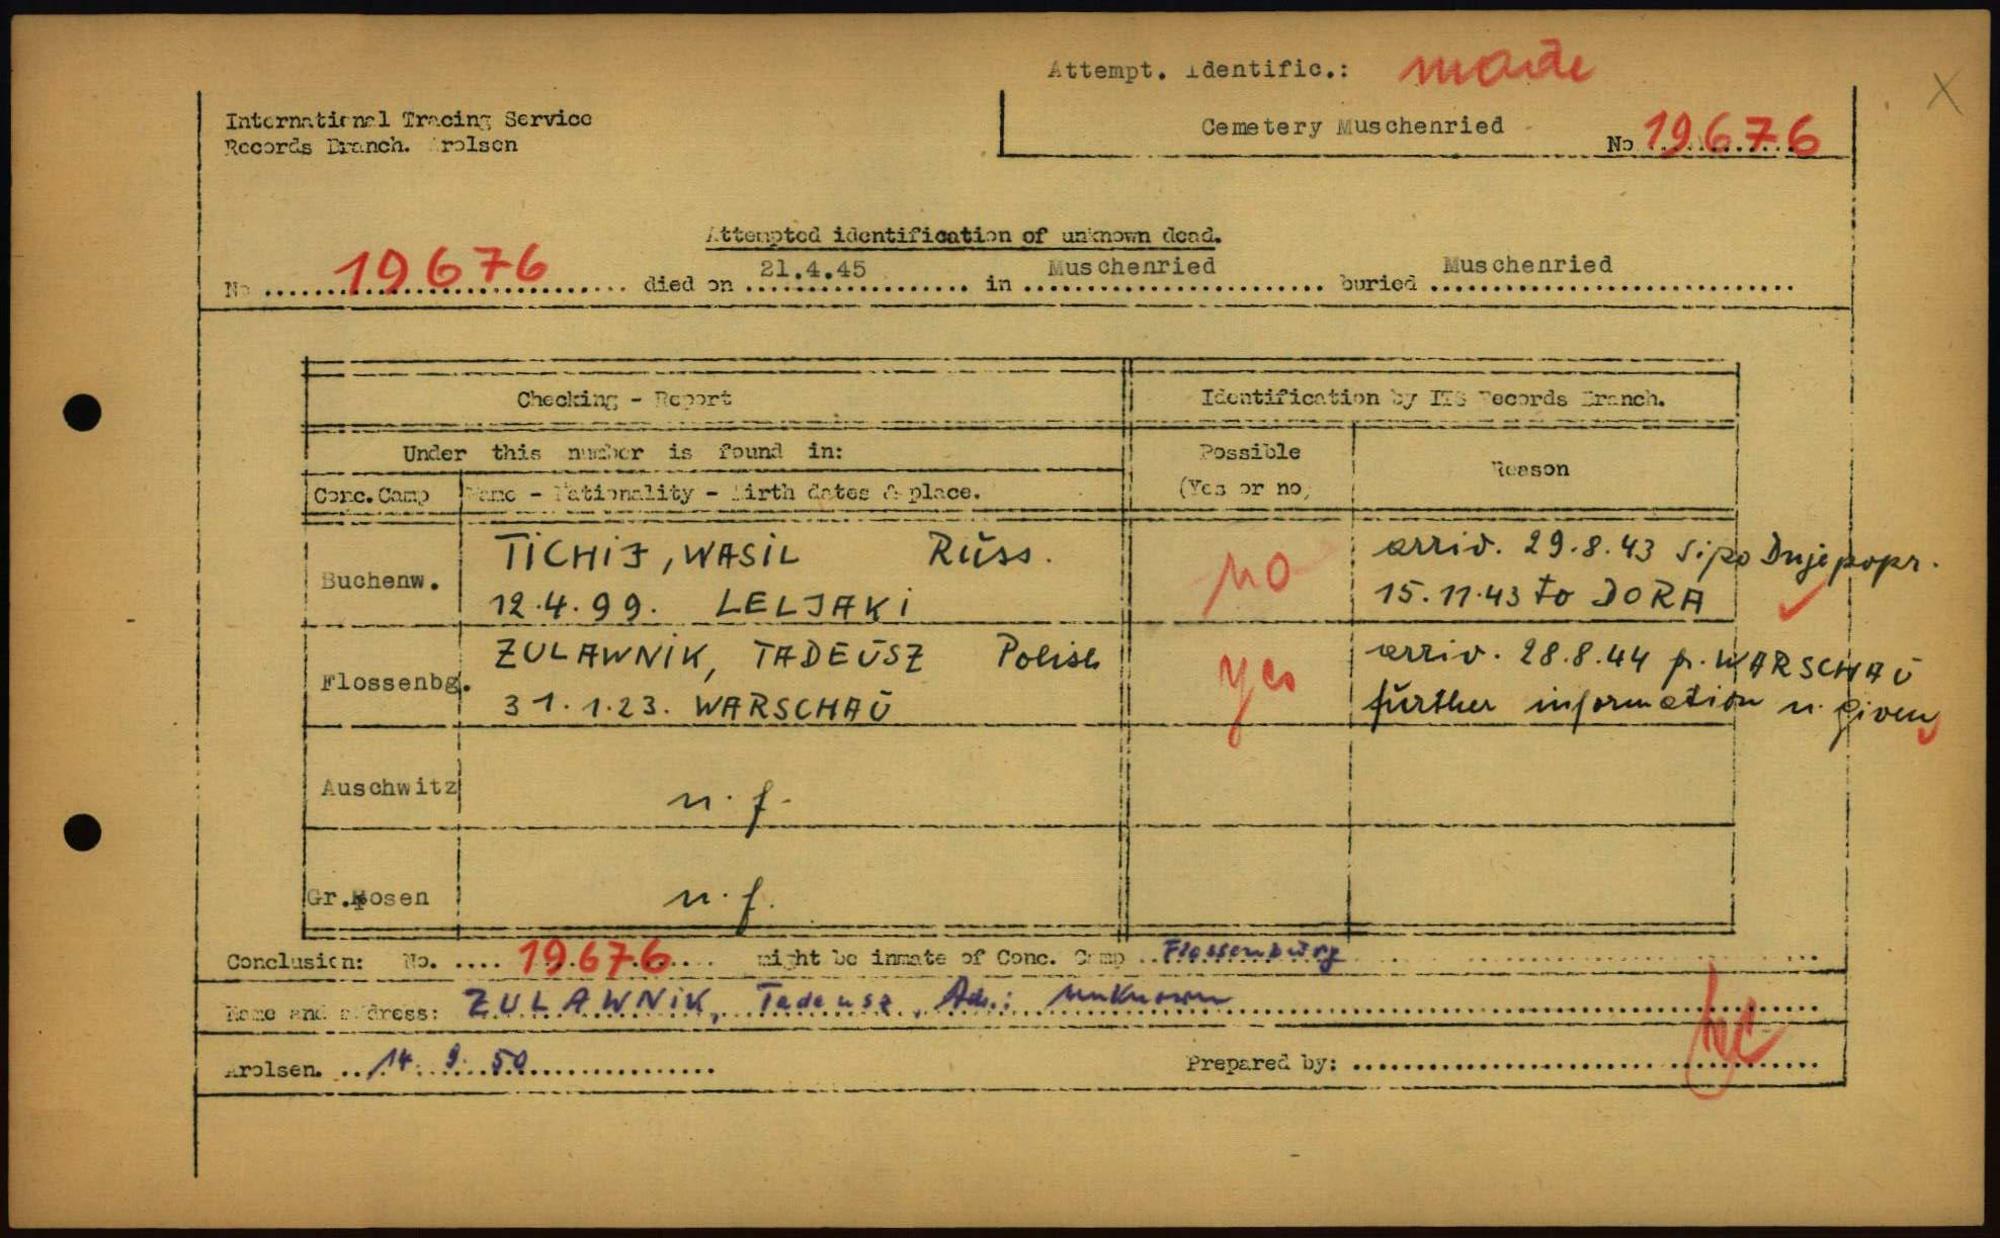 Attempt. Identific.: made
International Tracing Service
Records Branch. Arolsen
Cemetery Muschenried
No 19676
Attempted identification of unknown dead.
No 19676 died on 21.4.45 in Muschenried buried Muschenried
Checking - Report
Identification by ITS Records Branch.
Under this number is found in:
Possible
(Yes or no)
Reason
Conc. Camp
Name - Nationality - Birth dates & place.
Buchenw.
TICHIJ, WASIL Russ.
12.4.99. LELJAKI
no
arriv. 29.8.43 Sipo Dnjepopr.
15.11.43 to DORA
Flossenbg.
ZULAWNIK, TADEUSZ Polish
31.1.23. WARSCHAU
yes
arriv. 28.8.44 p. WARSCHAU
further information n. given
Auschwitz
n.f.
Gr.Rosen
n.f.
Conclusion: No. 19676 might be inmate of Conc. Camp Flossenburg
Name and address: ZULAWNIK, Tadeusz, Adr.: unknown
Arolsen. 14. 9. 50
Prepared by: